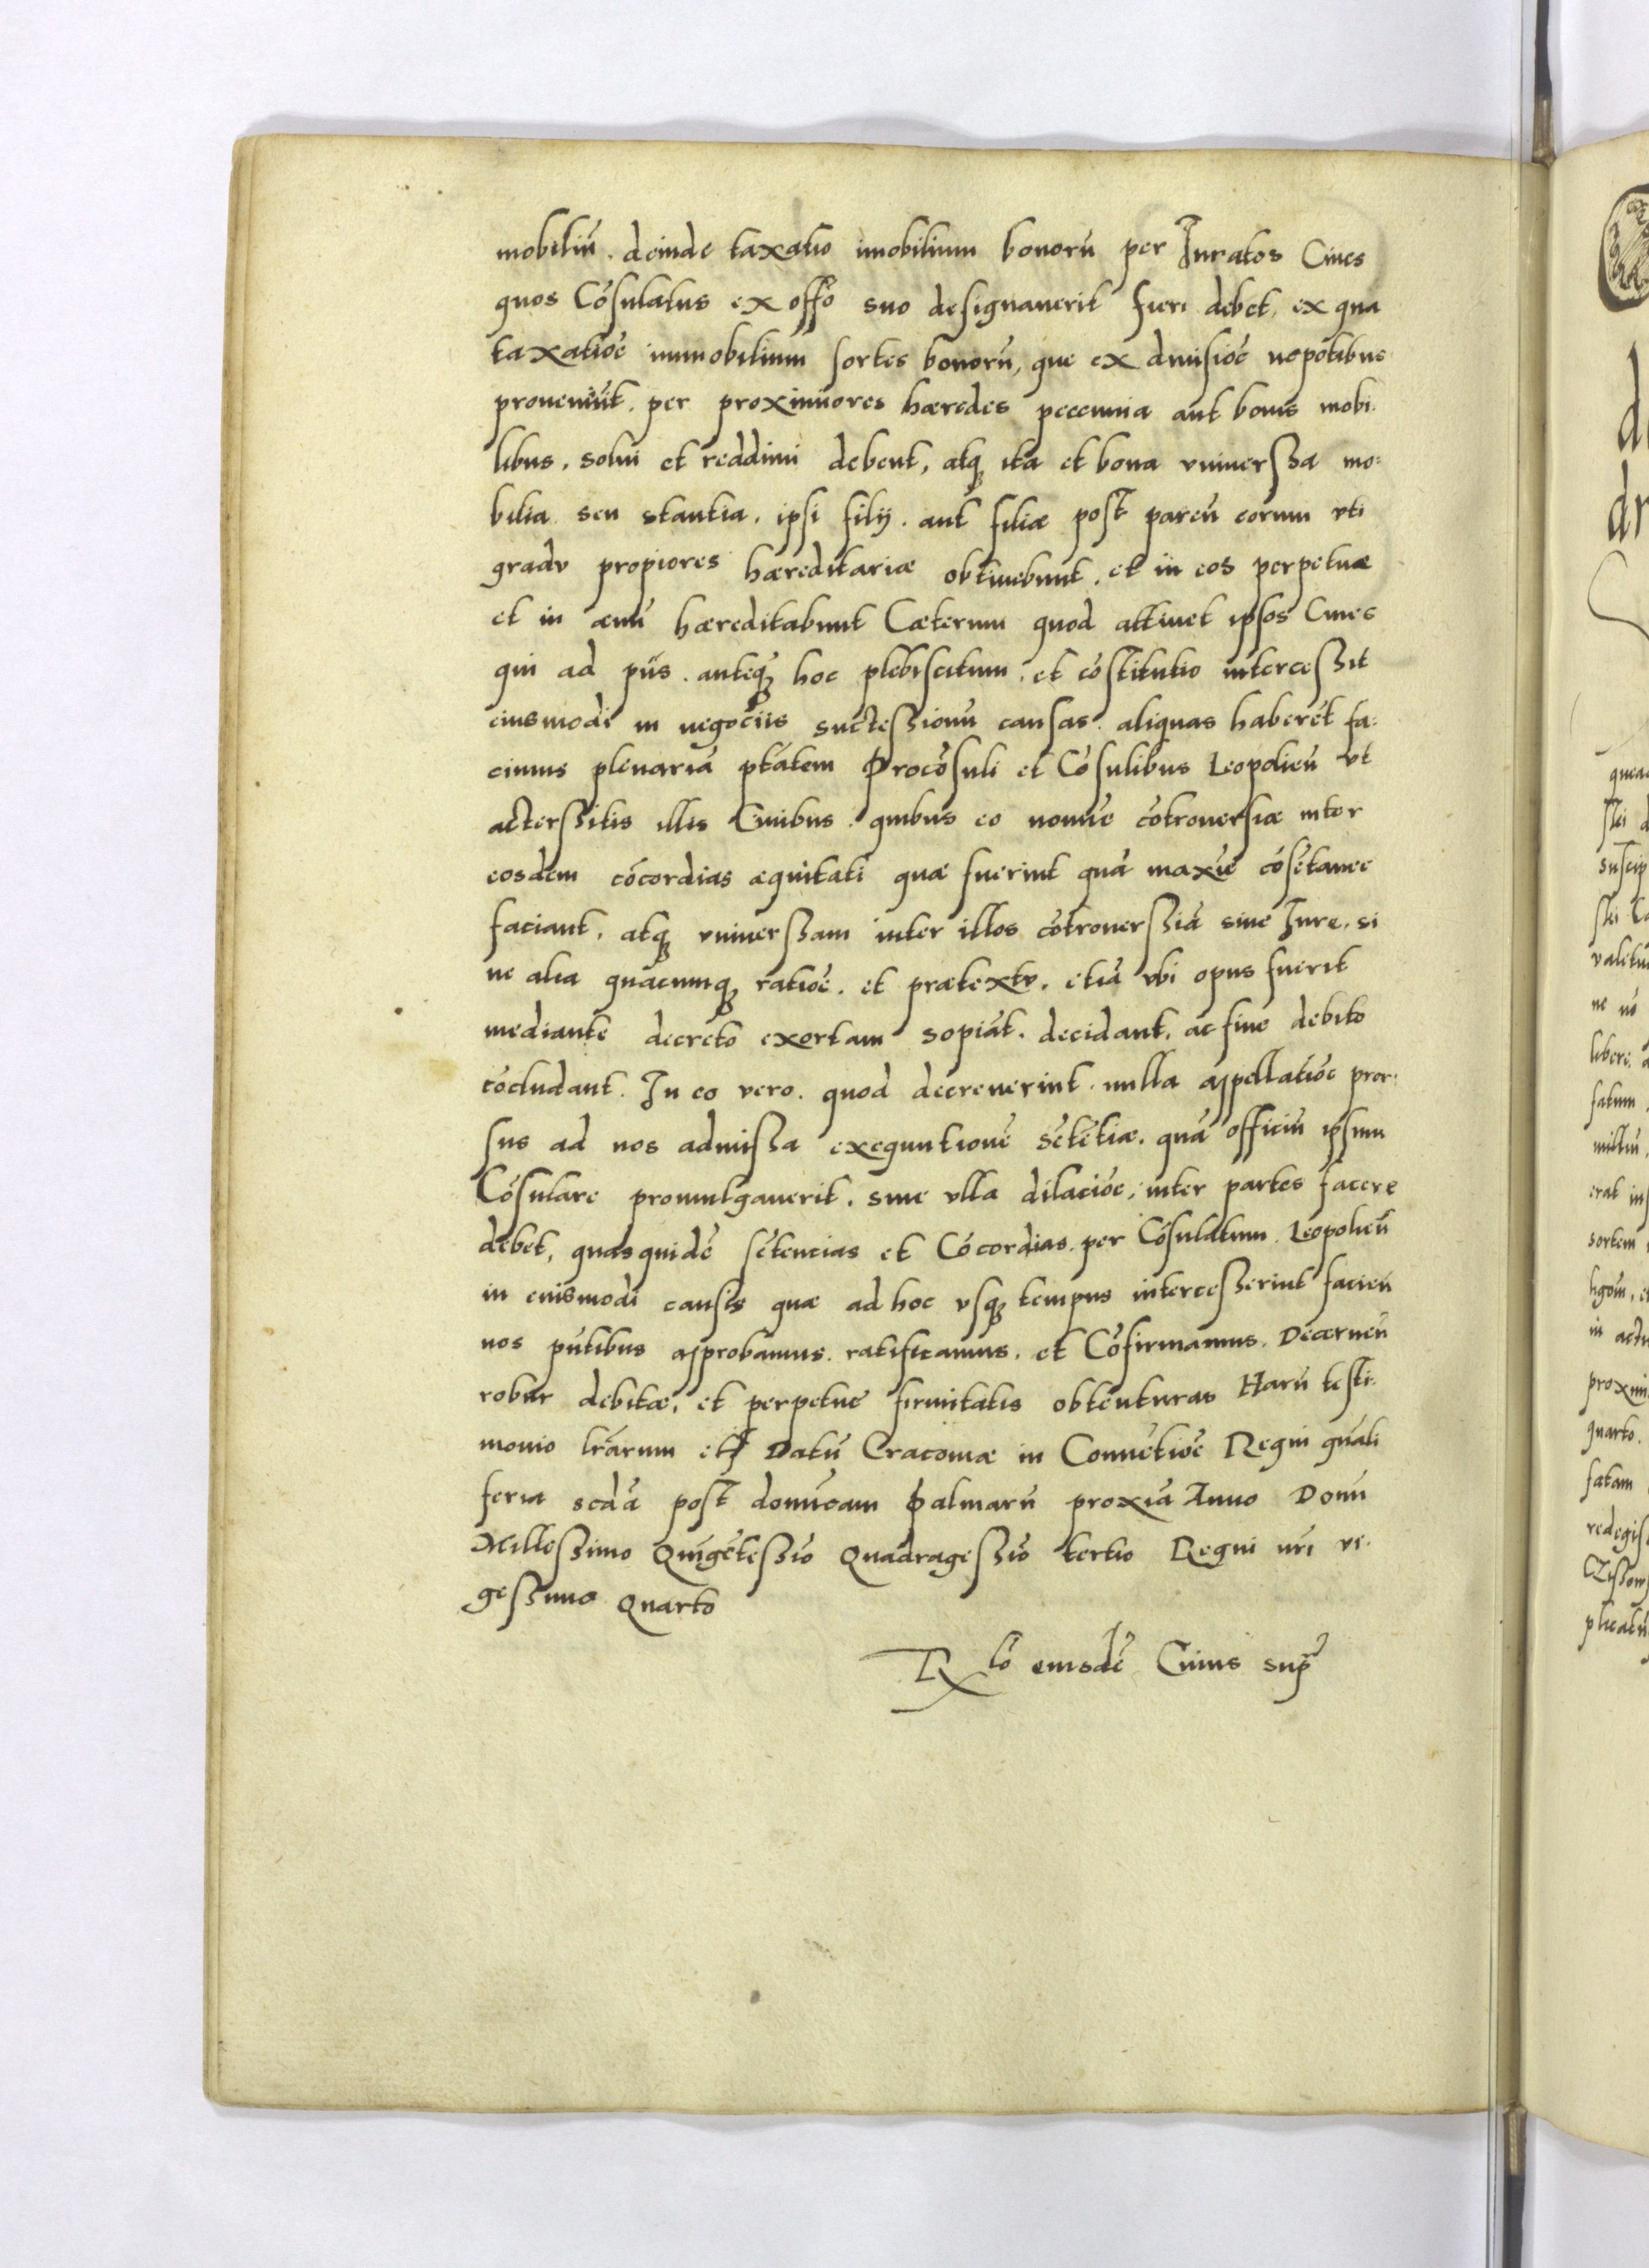 mobiliū. deinde taxatio imobilium bonorū per Iuratos Ciues
quos Cōsulatus ex offō suo designauerit fieri debet, ex qua
taxatiōe immobilium sortes bonorū, que ex diuisiōe nepotibus
proueniūt. per proximiores hæredes peccunia aut bonis mobi.
libus. solui et reddimi debent, atqꝫ ita et bona vniuersza mo=
bilia seu stantia. ipsi filij. aut filiæ post pareñ eorum vti
gradv propiores hæreditariæ obtinebunt. et in eos perpetuæ
et in æuū hæreditabunt Cæterum quod attinet ipsos Ciues
qui ad p̄ns. anteqꝫ hoc plebiscitum. et cōstitutio interceszit
eiusmodi in negociis succeszionū causas aliquas haberēt fa=
cimus plenariā ptātem Procōsuli et Cōsulibus Leopolieñ vt
acterszitis illis Ciuibus. quibus eo nomīe cōtrouersiæ inter
eosdem cōcordias æquitati quæ fuerint quā maxīe cōsētanee
faciant. atqꝫ vniuerszam inter illos cōtrouersziā sine Iure. si
ne alia quacumqꝫ ratiōe. et prætextv. etiā vbi opus fuerit
mediante decreto exortam sopiāt. decidant. ac fine debito
cōcludant. In eo vero. quod decreuerint. nulla appellatiōe pror=
sus ad nos admisza exequutionē sētētiæ. quā officiū ipsum
Cōsulare promulgauerit. sine vlla dilaciōe, inter partes facere
debet, quasquidē sētencias et Cōcordias. per Cōsulatum Leopolieñ
in eiusmodi causis quæ ad hoc vsqꝫ tempus interceszerint facieñ
nos pn̄tibus approbamus. ratificamus. et Cōfirmamus. Decerneñ
robur debitæ. et perpetue firmitatis obtenturas Harū testi.
monio lr̄arum Datū Cracouiæ in Conuētiōe Regni gn̄ali
feria scdā post domīcam Palmarū proxīa Anno Domī
Milleszimo Quīgēteszīo Quadrageszīo tertio Regni nr̄i vi.
geszimo Quarto
eiusdē Cuius supr̄